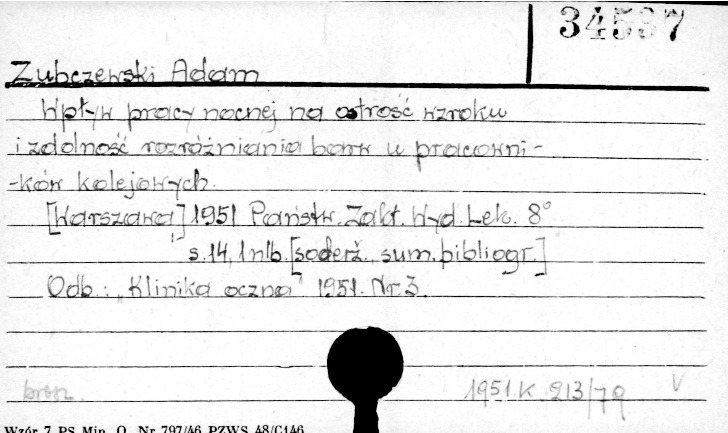 34537
Zubczewski Adam
Wpływ pracy nocnej na ostrość wzroku
i zdolność rozróżniania barw u pracowni-
-ków kolejowych.
[Warszawa] 1951 Państw. Zakł. Wyd. Lek. 8°
s. 14, 1 nlb. [soderž., sum. bibliogr.]
Odb.: "Klinika oczna" 1951. Nr. 3.
brosz.
1951.K. 213/79 V
Wzór 7 PS Min. O. Nr 797/46 PZWS 48/C146